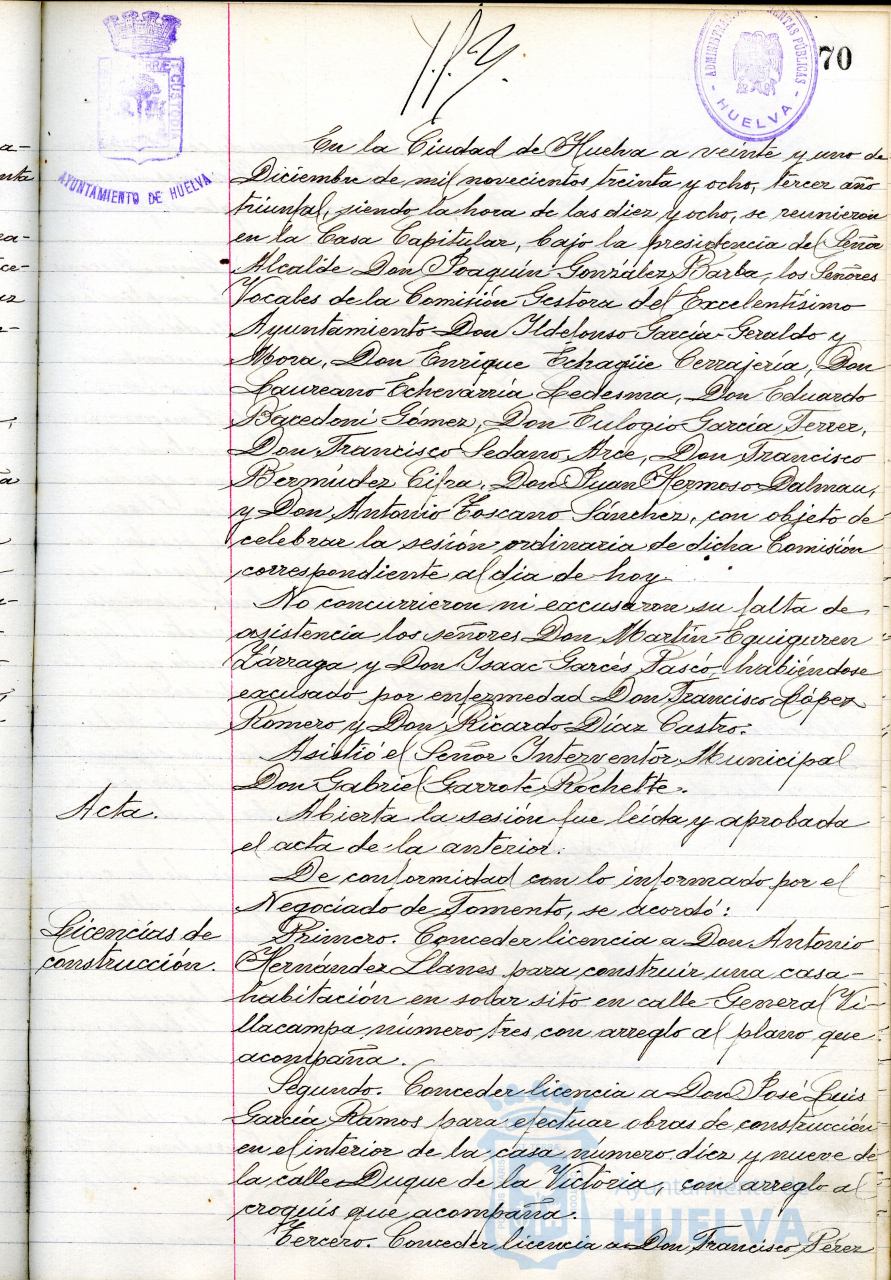 70
PORTUS MARIS ET TERRAE CUSTODIA
AYUNTAMIENTO DE HUELVA
ADMINISTRACION DE RENTAS PÚBLICAS
- HUELVA -
En la Ciudad de Huelva a veinte y uno de
Diciembre de mil novecientos treinta y ocho, tercer año
triunfal, siendo la hora de las diez y ocho, se reunieron
en la Casa Capitular, bajo la presidencia del Señor
Alcalde Don Joaquín González Barba, los Señores
Vocales de la Comisión Gestora del Excelentísimo
Ayuntamiento Don Ildefonso García-Geraldo y
Mora, Don Enrique Echagüe Cerrajería, Don
Laureano Echevarría Ledesma, Don Eduardo
Bacedoní Gómez, Don Eulogio García Ferrer,
Don Francisco Sedano Arce, Don Francisco
Bermúdez Cifra, Don Juan Hermoso Dalmau,
y Don Antonio Toscano Sánchez, con objeto de
celebrar la sesión ordinaria de dicha Comisión
correspondiente al día de hoy.
No concurrieron ni excusaron su falta de
asistencia los señores Don Martín Eguiguren
Lárraga y Don Isaac Garcés Pascó, habiéndose
excusado por enfermedad Don Francisco López
Romero y Don Ricardo Díaz Castro.
Asistió el Señor Interventor Municipal
Don Gabriel Garrote Rochette.
Acta.
Abierta la sesión fue leída y aprobada
el acta de la anterior.
De conformidad con lo informado por el
Negociado de Fomento, se acordó:
Licencias de
construcción.
Primero. Conceder licencia a Don Antonio
Hernández Llanes para construir una casa-
habitación en solar sito en calle General Vi-
llacampa número tres con arreglo al plano que
acompaña.
Segundo. Conceder licencia a Don José Luis
García Ramos para efectuar obras de construcción
en el interior de la casa número diez y nueve de
la calle Duque de la Victoria, con arreglo al
croquis que acompaña.
Tercero. Conceder licencia a Don Francisco Pérez
Ayuntamiento de
HUELVA